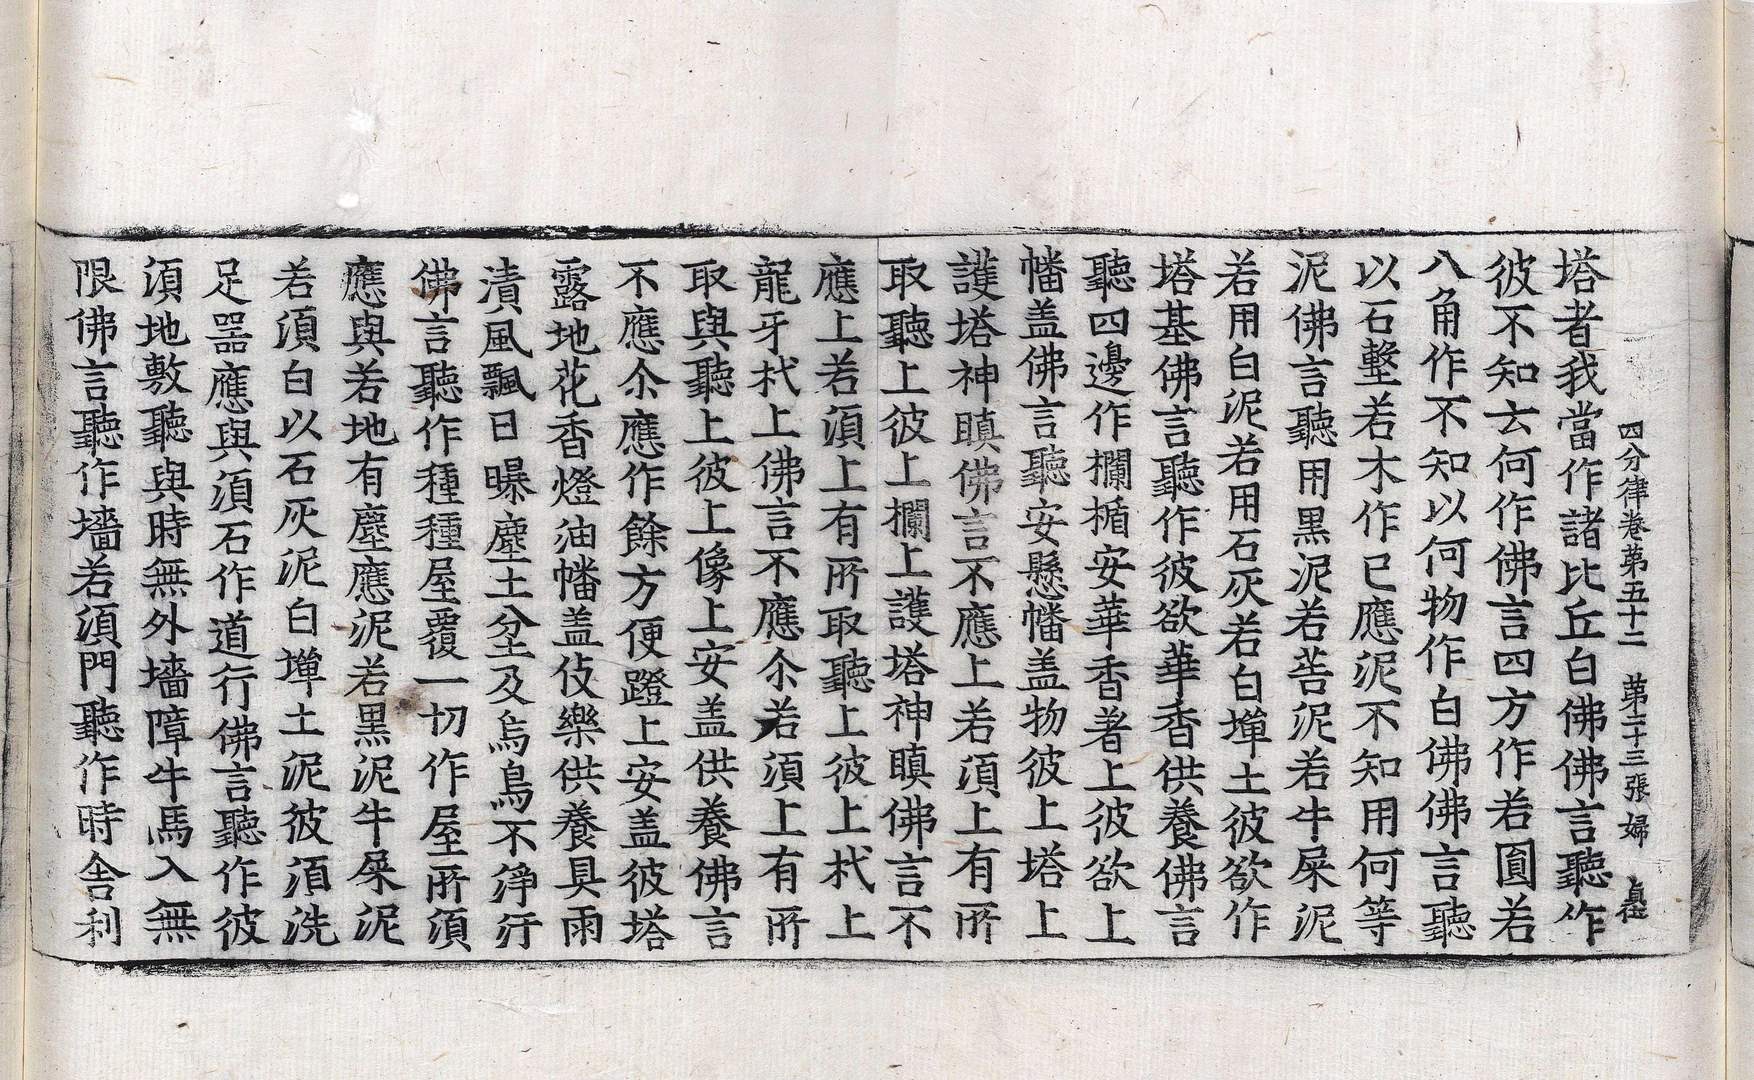 四分律卷第五十二 第二十三張 婦
塔者我當作諸比丘白佛佛言聽作
彼不知云何作佛言四方作若圓若
八角作不知以何物作白佛佛言聽
以石墼若木作已應泥不知用何等
泥佛言聽用黑泥若𦮼泥若牛屎泥
若用白泥若用石灰若白墠土彼欲作
塔基佛言聽作彼欲華香供養佛言
聽四邊作欄楯安華香著上彼欲上
幡盖佛言聽安懸幡盖物彼上塔上
護塔神瞋佛言不應上若須上有所
取聽上彼上欄上護塔神瞋佛言不
應上若須上有所取聽上彼上杙上
龍牙杙上佛言不應尒若須上有所
取與聽上彼上像上安盖供養佛言
不應尒應作餘方便蹬上安盖彼塔
露地花香燈油幡盖伎樂供養具雨
漬風飄日曝塵土坌及烏鳥不淨汙
佛言聽作種種屋覆一切作屋所須
應與若地有塵應泥若黑泥牛屎泥
若須白以石灰泥白墠土泥彼須洗
足器應與須石作道行佛言聽作彼
須地敷聽與時無外墻障牛馬入無
限佛言聽作墻若須門聽作時舍利